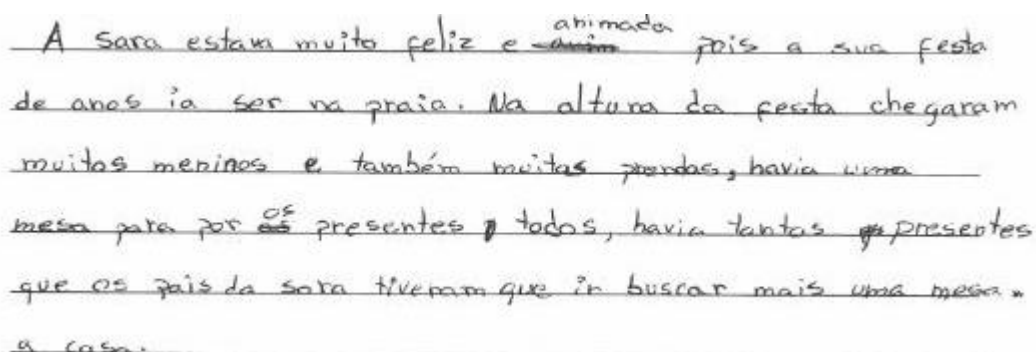 A Sara estava muito feliz e animada pois a sua festa
de anos ia ser na praia. Na altura da festa chegaram
muitos meninos e também muitas prendas, havia uma
mesa para por os presentes todos, havia tantos presentes
que os pais da sara tiveram que ir buscar mais uma mesa.
a casa.